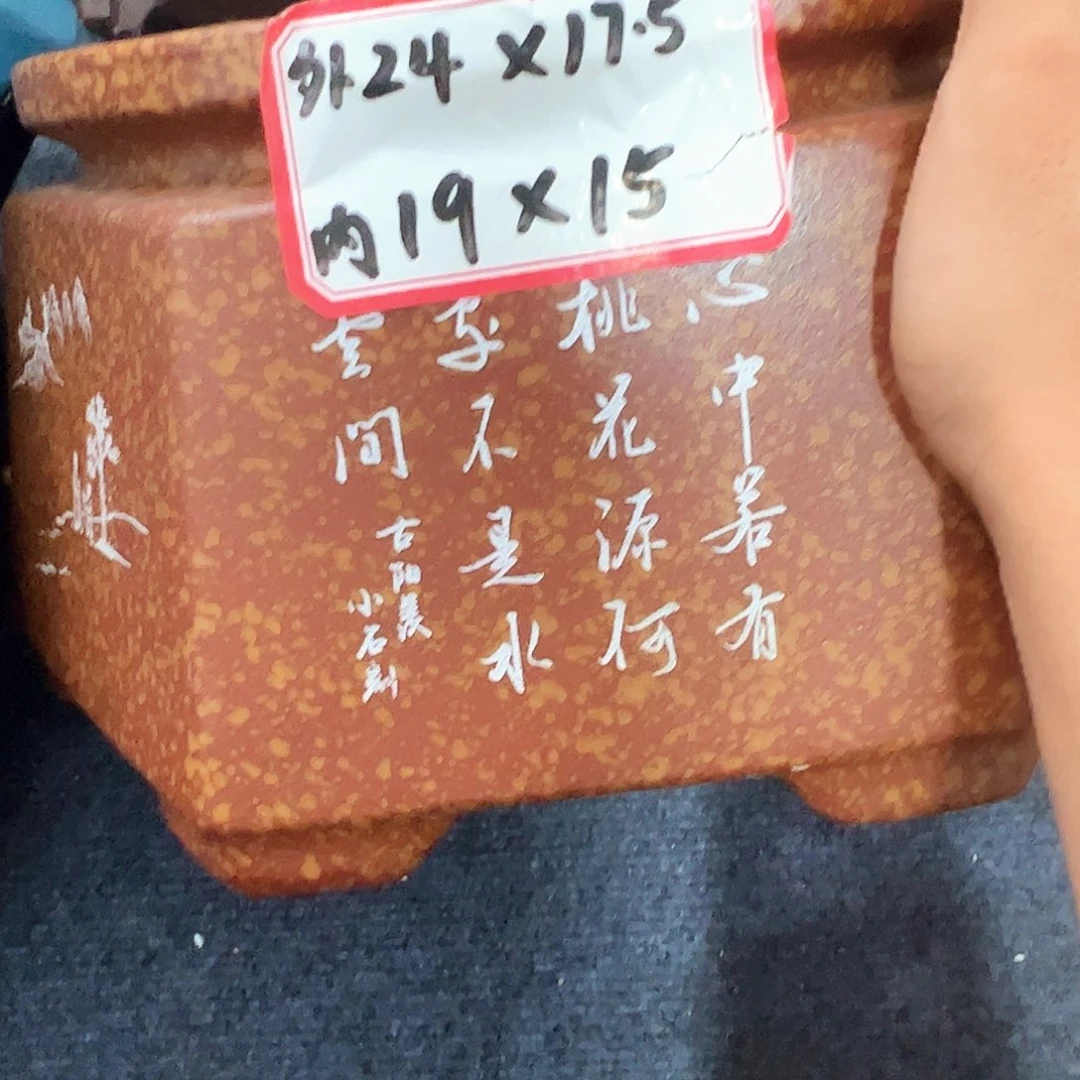 外24×17.5
内19×15
心中若有
桃花源何
家不是水
雲间
古阳羡
小石刻